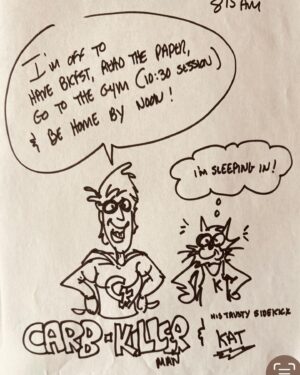 8:15 AM
I'M OFF TO
HAVE BKFST, READ THE PAPER,
GO TO THE GYM (10:30 SESSION)
& BE HOME BY NOON!
I'M SLEEPING IN!
CK
K
CARB-KILLER
MAN
&
HIS TRUSTY SIDEKICK
KAT